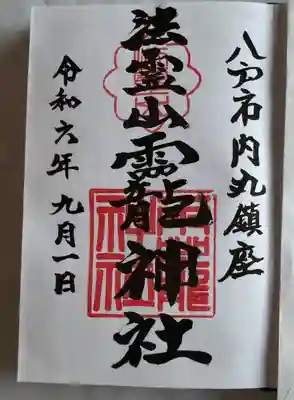 八戸市内丸鎮座
法霊山龗神社
令和六年九月一日
龗
神社